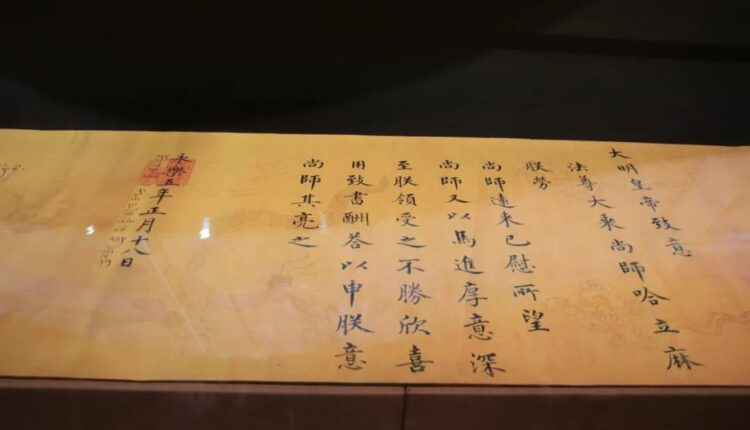 大明皇帝致意
法尊大乘尚師哈立麻
朕勞
尚師遠來已慰所望
尚師又以馬進厚意深
至朕領受之不勝欣喜
用致書酬荅以申朕意
尚師其亮之
永樂五年正月十八日